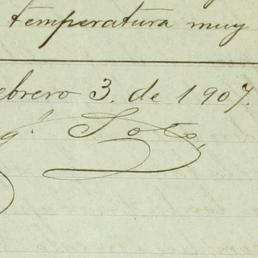 temperatura muy
ebrero 3. de 1907.
Soto,